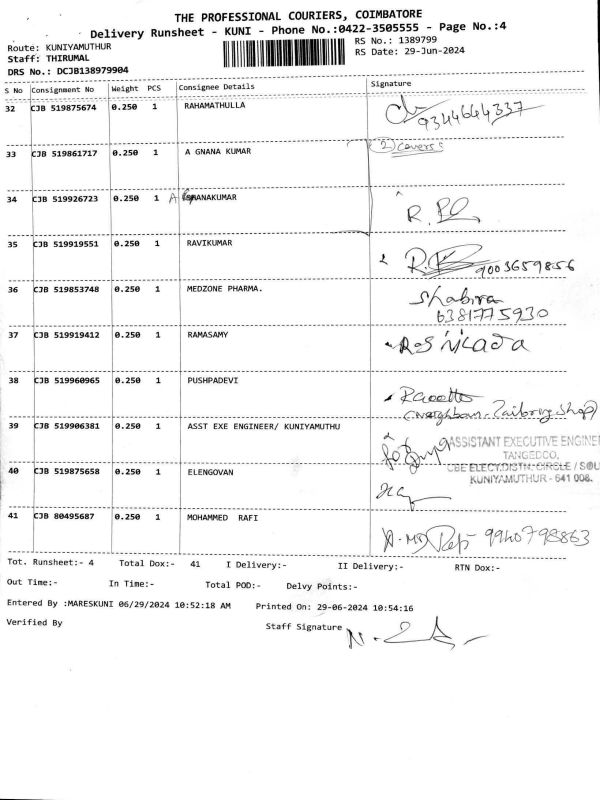 THE PROFESSIONAL COURIERS, COIMBATORE
Delivery Runsheet - KUNI - Phone No.:0422-3505555 - Page No.:4
Route: KUNIYAMUTHUR
RS No.: 1389799
Staff: THIRUMAL
RS Date: 29-Jun-2024
DRS No.: DCJB138979904
S No Consignment No Weight PCS Consignee Details Signature
32 CJB 519875674 0.250 1 RAHAMATHULLA
9344644337
33 CJB 519861717 0.250 1 A GNANA KUMAR
2 covers
34 CJB 519926723 0.250 1 A GNANAKUMAR
35 CJB 519919551 0.250 1 RAVIKUMAR
9003659856
36 CJB 519853748 0.250 1 MEDZONE PHARMA.
Shabira
6381775930
37 CJB 519919412 0.250 1 RAMASAMY
38 CJB 519960965 0.250 1 PUSHPADEVI
(neighbour. Tailoring shop)
39 CJB 519906381 0.250 1 ASST EXE ENGINEER/ KUNIYAMUTHU
ASSISTANT EXECUTIVE ENGINE
TANGEDCO,
CBE ELECT.DISTN. CIRCLE / SOU
KUNIYAMUTHUR - 641 008.
40 CJB 519875658 0.250 1 ELENGOVAN
41 CJB 80495687 0.250 1 MOHAMMED RAFI
9940798863
Tot. Runsheet:- 4 Total Dox:- 41 I Delivery:- II Delivery:- RTN Dox:-
Out Time:- In Time:- Total POD:- Delvy Points:-
Entered By :MARESKUNI 06/29/2024 10:52:18 AM Printed On: 29-06-2024 10:54:16
Verified By Staff Signature